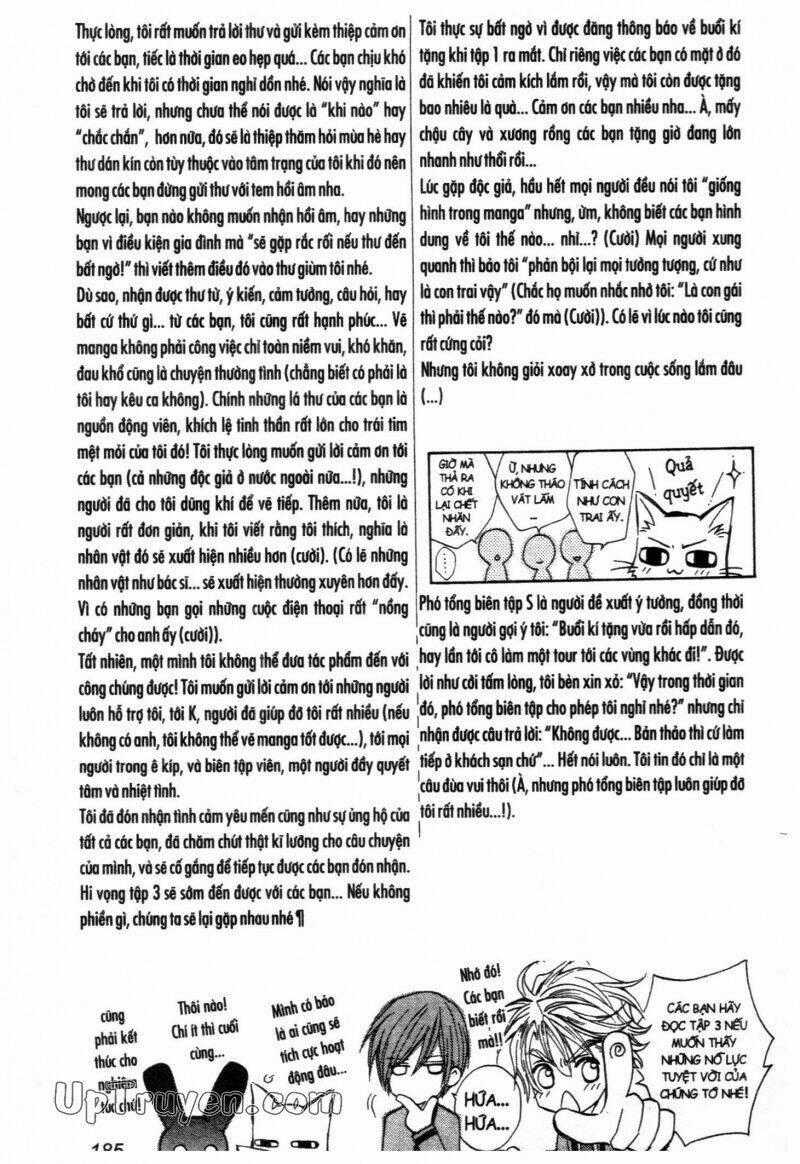 Thực lòng, tôi rất muốn trả lời thư và gửi kèm thiệp cảm ơn
tới các bạn, tiếc là thời gian eo hẹp quá... Các bạn chịu khó
chờ đến khi tôi có thời gian nghỉ dồn nhé. Nói vậy nghĩa là
tôi sẽ trả lời, nhưng chưa thể nói được là “khi nào” hay
“chắc chắn”, hơn nữa, đó sẽ là thiệp thăm hỏi mùa hè hay
thư dán kín còn tùy thuộc vào tâm trạng của tôi khi đó nên
mong các bạn đừng gửi thư với tem hồi âm nha.
Ngược lại, bạn nào không muốn nhận hồi âm, hay những
bạn vì điều kiện gia đình mà “sẽ gặp rắc rối nếu thư đến
bất ngờ!” thì viết thêm điều đó vào thư giùm tôi nhé.
Dù sao, nhận được thư từ, ý kiến, cảm tưởng, câu hỏi, hay
bất cứ thứ gì... từ các bạn, tôi cũng rất hạnh phúc... Vẽ
manga không phải công việc chỉ toàn niềm vui, khó khăn,
đau khổ cũng là chuyện thường tình (chẳng biết có phải là
tôi hay kêu ca không). Chính những lá thư của các bạn là
nguồn động viên, khích lệ tinh thần rất lớn cho trái tim
mệt mỏi của tôi đó! Tôi thực lòng muốn gửi lời cảm ơn tới
các bạn (cả những độc giả ở nước ngoài nữa...!), những
người đã cho tôi dũng khí để vẽ tiếp. Thêm nữa, tôi là
người rất đơn giản, khi tôi viết rằng tôi thích, nghĩa là
nhân vật đó sẽ xuất hiện nhiều hơn (cười). (Có lẽ những
nhân vật như bác sĩ... sẽ xuất hiện thường xuyên hơn đấy.
Vì có những bạn gọi những cuộc điện thoại rất “nồng
cháy” cho anh ấy (cười)).
Tất nhiên, một mình tôi không thể đưa tác phẩm đến với
công chúng được! Tôi muốn gửi lời cảm ơn tới những người
luôn hỗ trợ tôi, tới K, người đã giúp đỡ tôi rất nhiều (nếu
không có anh, tôi không thể vẽ manga tốt được...), tới mọi
người trong ê kíp, và biên tập viên, một người đầy quyết
tâm và nhiệt tình.
Tôi đã đón nhận tình cảm yêu mến cũng như sự ủng hộ của
tất cả các bạn, đã chăm chút thật kĩ lưỡng cho câu chuyện
của mình, và sẽ cố gắng để tiếp tục được các bạn đón nhận.
Hi vọng tập 3 sẽ sớm đến được với các bạn... Nếu không
phiền gì, chúng ta sẽ lại gặp nhau nhé ¶
Tôi thực sự bất ngờ vì được đăng thông báo về buổi kí
tặng khi tập 1 ra mắt. Chỉ riêng việc các bạn có mặt ở đó
đã khiến tôi cảm kích lắm rồi, vậy mà tôi còn được tặng
bao nhiêu là quà... Cảm ơn các bạn nhiều nha... À, mấy
chậu cây và xương rồng các bạn tặng giờ đang lớn
nhanh như thổi rồi...
Lúc gặp độc giả, hầu hết mọi người đều nói tôi “giống
hình trong manga” nhưng, ừm, không biết các bạn hình
dung về tôi thế nào... nhỉ...? (Cười) Mọi người xung
quanh thì bảo tôi “phản bội lại mọi tưởng tượng, cứ như
là con trai vậy” (Chắc họ muốn nhắc nhở tôi: “Là con gái
thì phải thế nào?” đó mà (Cười)). Có lẽ vì lúc nào tôi cũng
rất cứng cỏi?
Nhưng tôi không giỏi xoay xở trong cuộc sống lắm đâu
(...)
GIỜ MÀ
THẢ RA
CÓ KHI
LẠI CHẾT
NHĂN
ĐẤY.
Ừ, NHƯNG
KHÔNG THÁO
VÁT LẮM
...
TÍNH CÁCH
NHƯ CON
TRAI ẤY.
Quả
quyết
Phó tổng biên tập S là người đề xuất ý tưởng, đồng thời
cũng là người gợi ý tôi: “Buổi kí tặng vừa rồi hấp dẫn đó,
hay lần tới cô làm một tour tới các vùng khác đi!”. Được
lời như cởi tấm lòng, tôi bèn xin xỏ: “Vậy trong thời gian
đó, phó tổng biên tập cho phép tôi nghỉ nhé?” nhưng chỉ
nhận được câu trả lời: “Không được... Bản thảo thì cứ làm
tiếp ở khách sạn chứ”... Hết nói luôn. Tôi tin đó chỉ là một
câu đùa vui thôi (À, nhưng phó tổng biên tập luôn giúp đỡ
tôi rất nhiều...!).
cũng
phải kết
thúc cho
nghiêm
túc chứ!
Thôi nào!
Chí ít thì cuối
cùng...
Mình có bảo
là ai cũng sẽ
tích cực hoạt
động đâu...
Nhớ đó!
Các bạn
biết rồi
mà!!
HỨA...
HỨA...
CÁC BẠN HÃY
ĐỌC TẬP 3 NẾU
MUỐN THẤY
NHỮNG NỖ LỰC
TUYỆT VỜI CỦA
CHÚNG TỚ NHÉ!
UpTruyen.com
185